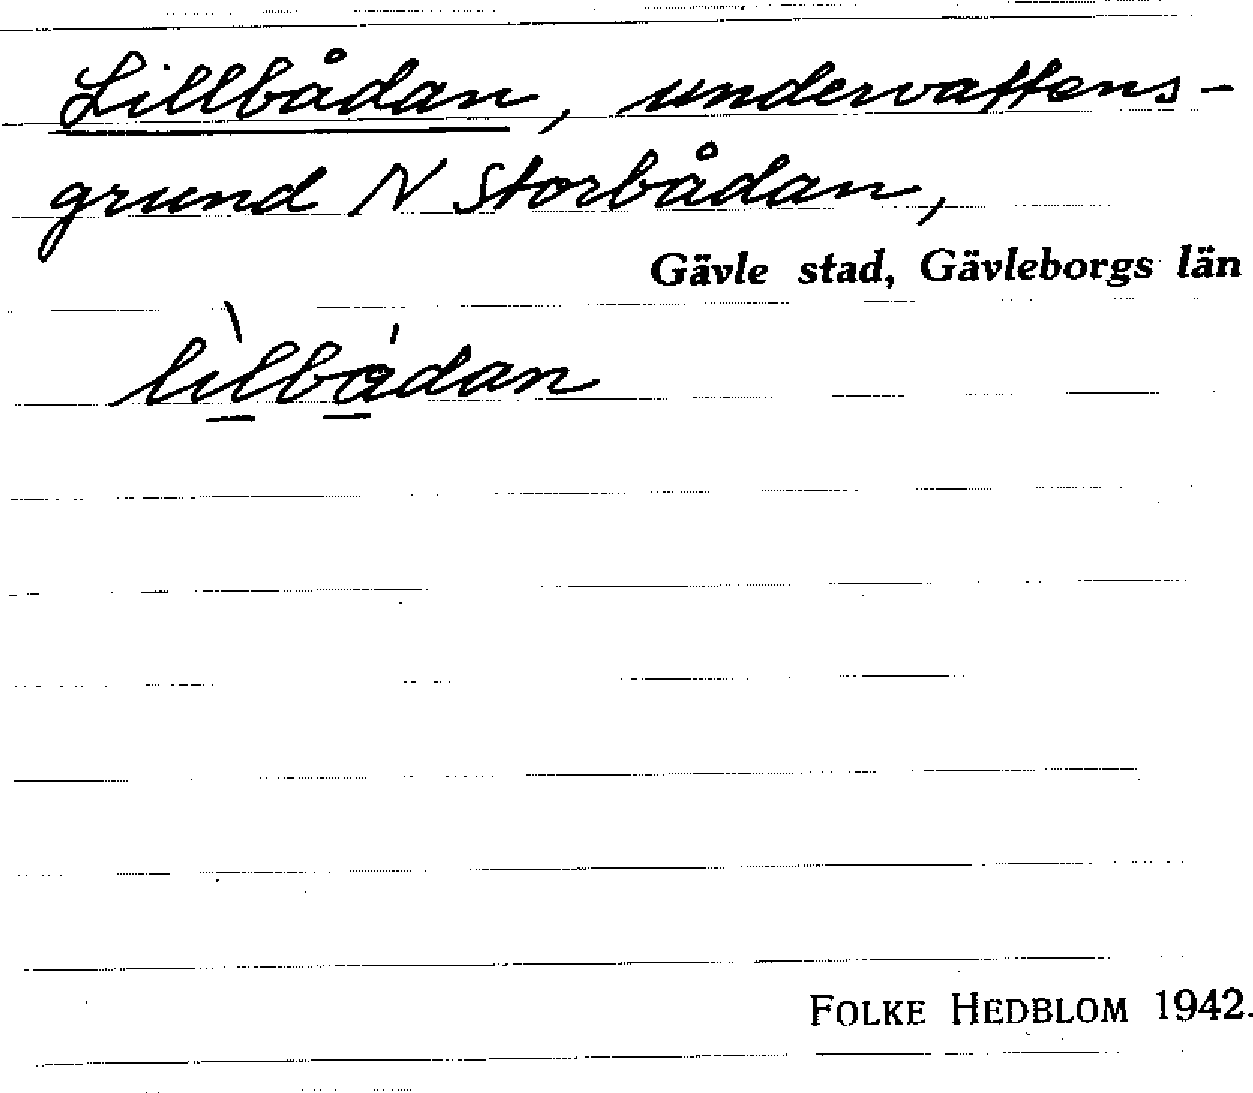 Lillbådan, undervattens-
grund N Storbådan,
Gävle stad, Gävleborgs län
lìlbádan
FOLKE HEDBLOM 1942.